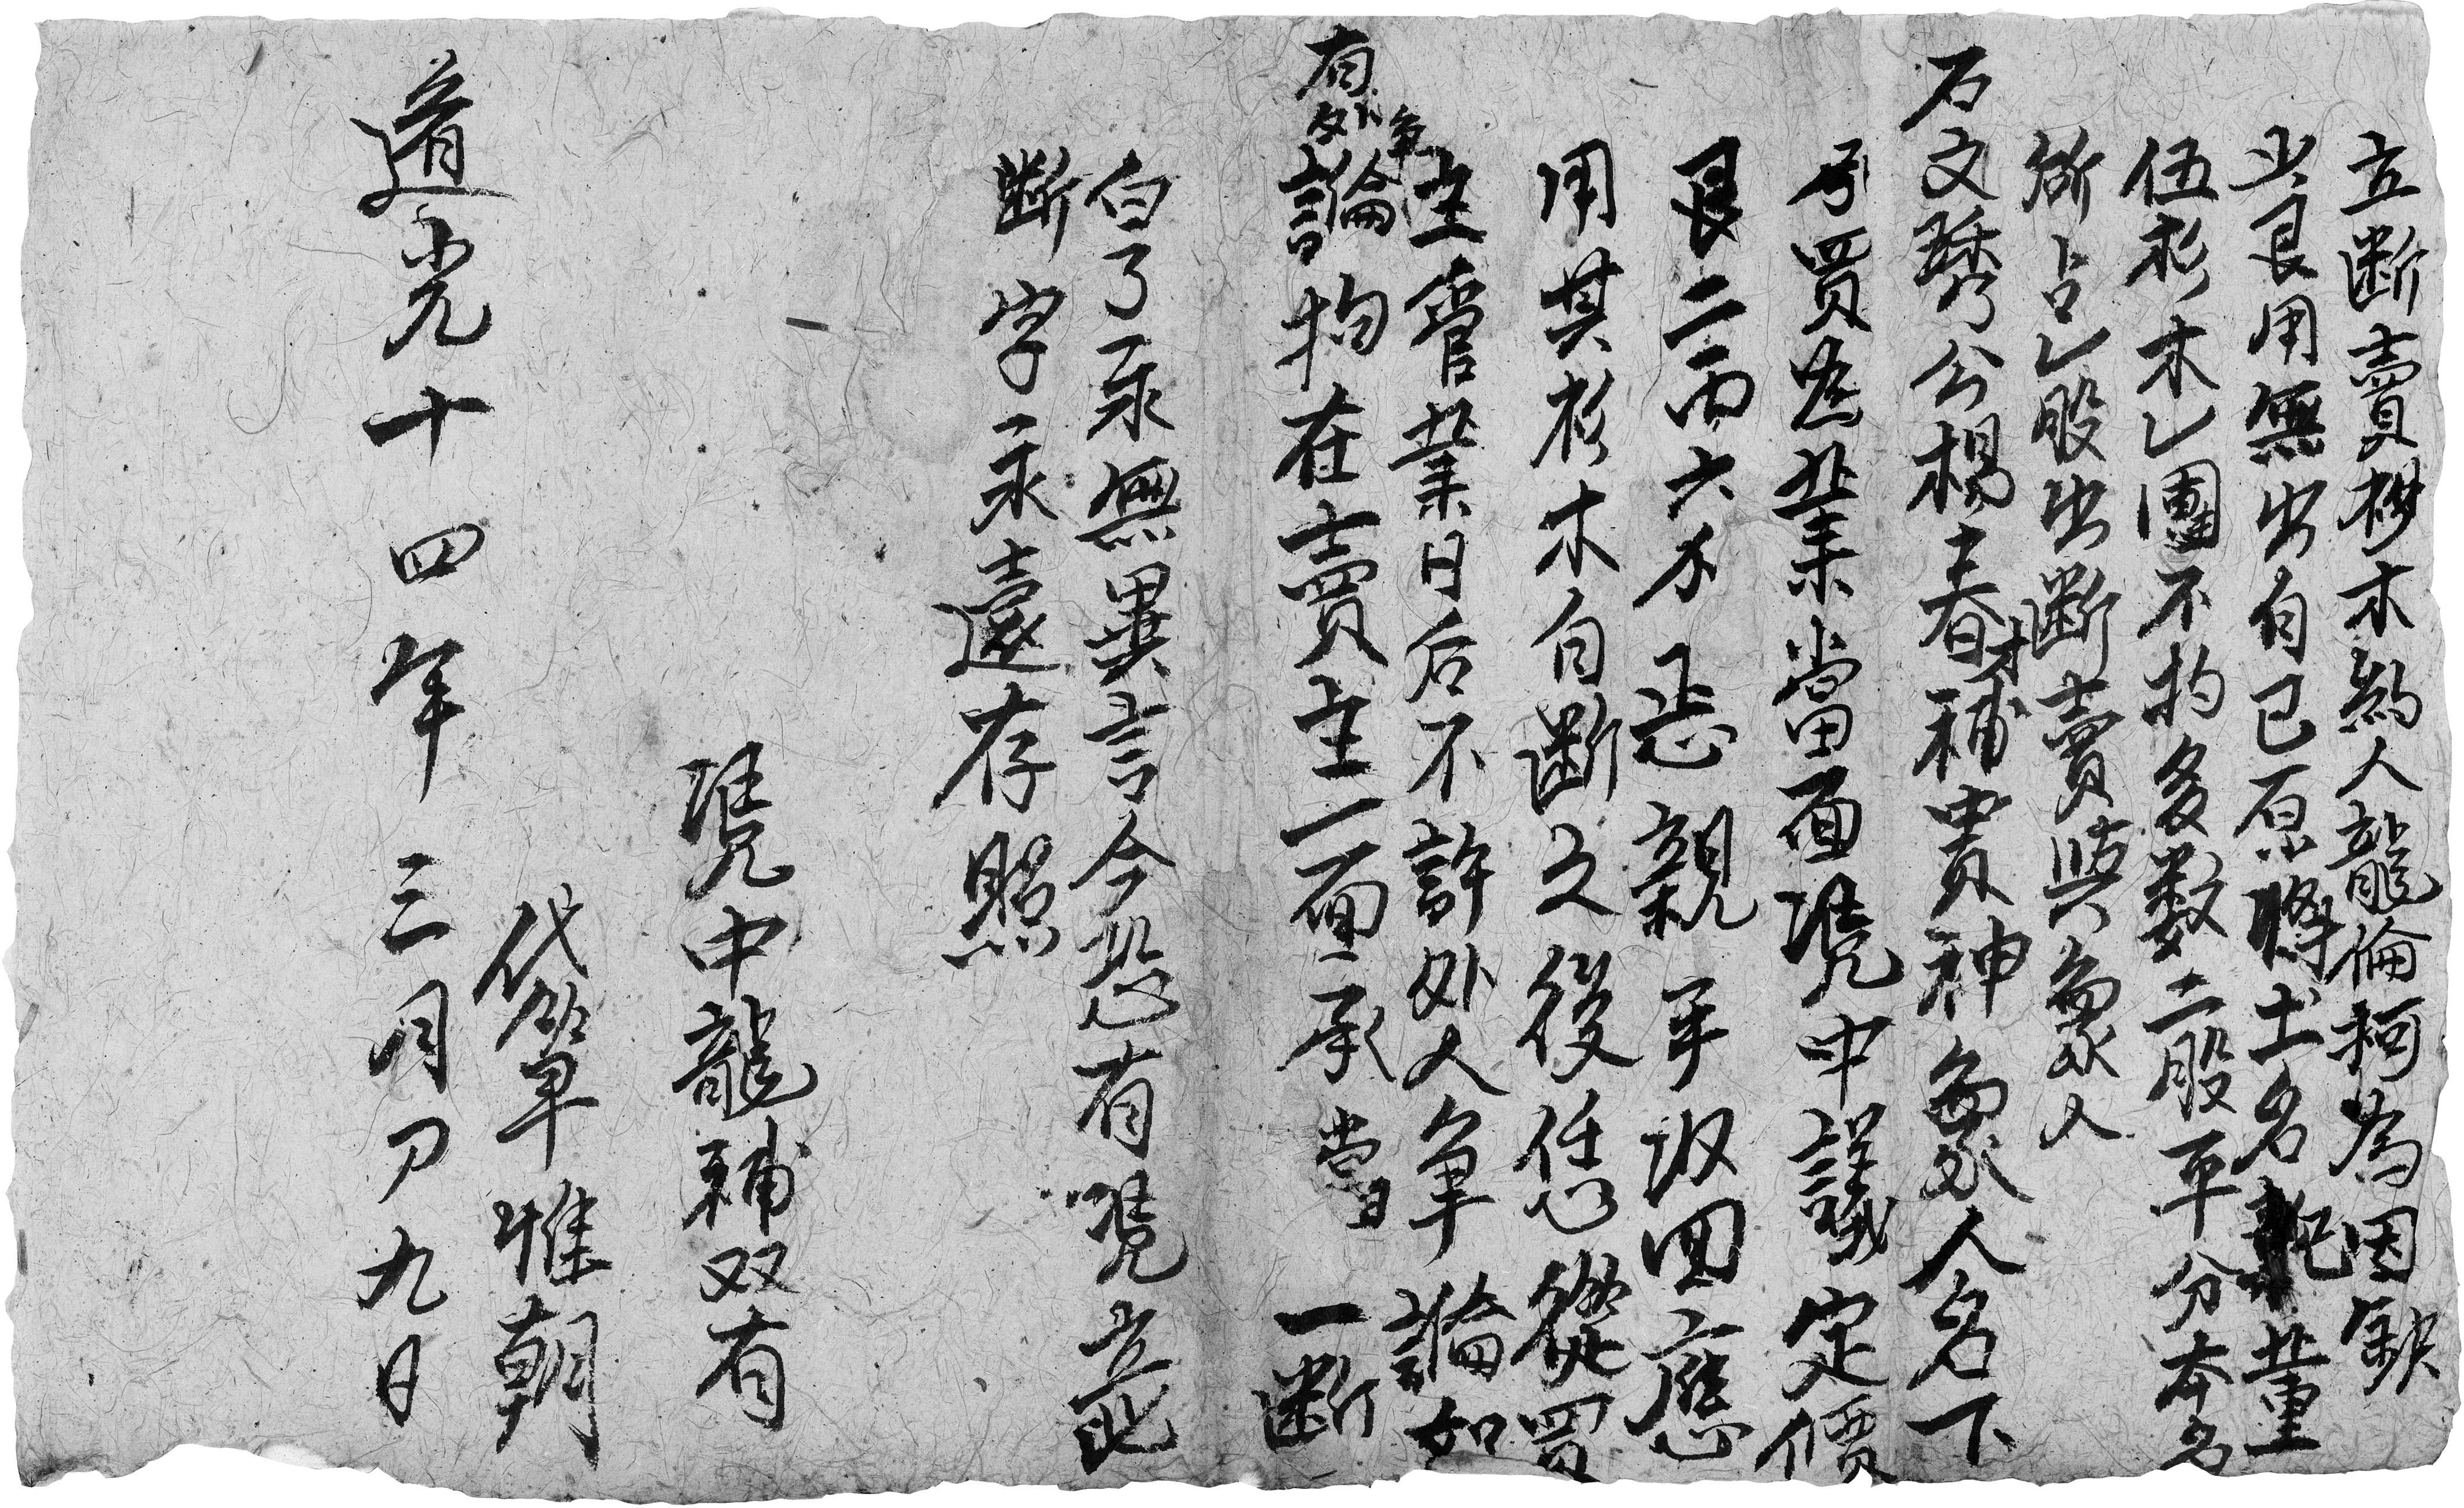 立断賣杉木約人龍倫柯為因缺
少艮用無出自己原將土名董
伍杉木乚團不拘多数二股平分本名
所占乚股出断賣與衆人
石文琇公楊春才補貴神衆人名下
承買為業當面凴中議定價
艮二両六木正親手収回應
用其杉木自断之後恁從買
主管業日后不許外人争論如
有外争論拘在賣主一面承當一断
白了永無異言今恐有凴立此
断字永遠存照
凴中龍補双有
代筆惟朝
道光十四年三月初九日